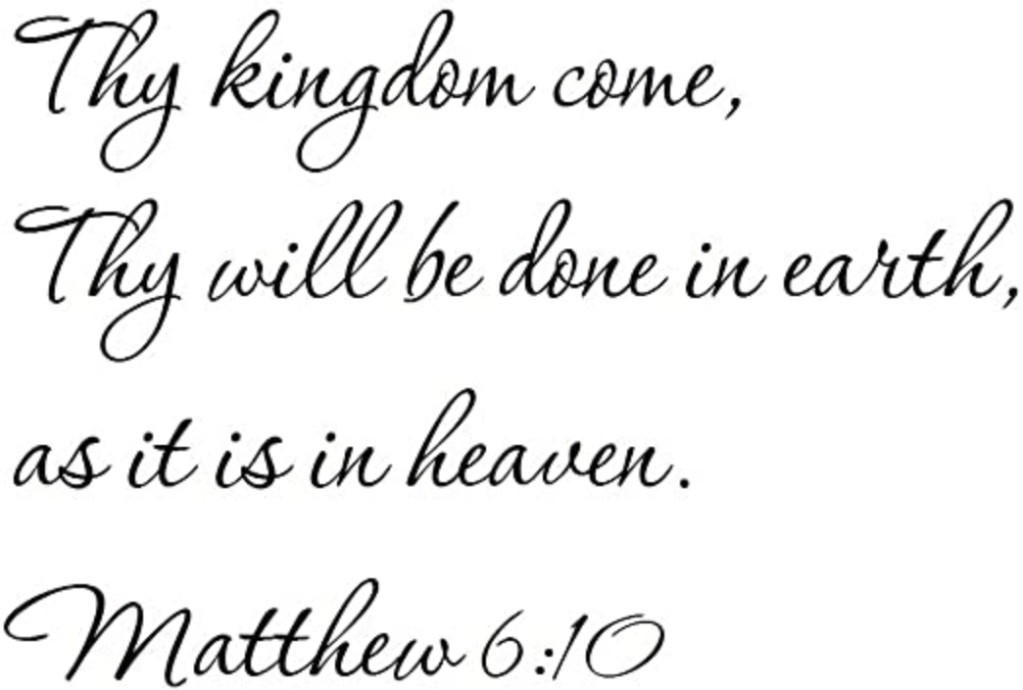 Thy kingdom come,
Thy will be done in earth,
as it is in heaven.
Matthew 6:10